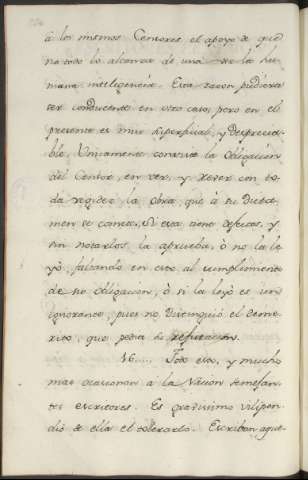 à los mismos Censores el apoyo de que
no todo lo alcanza de una vez la hu-
mana inteligencia. Esta razon pudiera
ser conducente en otro caso, pero en el
presente es mui superficial, y desprecia-
ble. Unicamente consiste la obligacion
del Censor en ver, y rever con to-
da rigidez la obra, que à su dicta-
men se comete. Si esta tiene defectos, y
sin notarlos la aprueba, ò no la le-
yò, faltando en esto al cumplimiento
de su obligacion, ò si la leyò es un
ignorante, pues no distinguiò el deme-
rito, que pedia su refutacion.
16.... Todo esto, y mucho
mas ocasionan à la Nacion semejan-
tes escritores. Es gravisimo vilipen-
dio de ella el tolerarlo. Escriban aque-